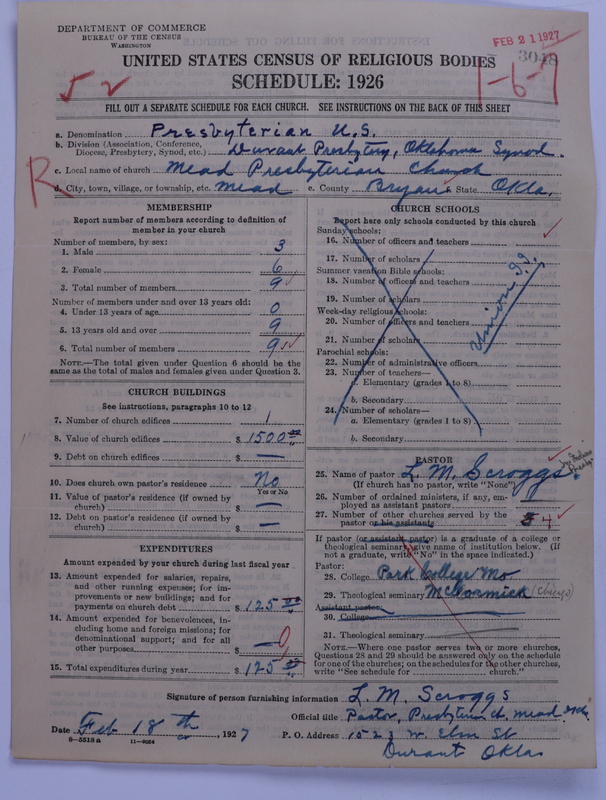 DEPARTMENT OF COMMERCE
BUREAU OF THE CENSUS
WASHINGTON
FEB 21 1927
3048
1-6-7
52
R
UNITED STATES CENSUS OF RELIGIOUS BODIES
SCHEDULE: 1926
FILL OUT A SEPARATE SCHEDULE FOR EACH CHURCH. SEE INSTRUCTIONS ON THE BACK OF THIS SHEET
a. Denomination Presbyterian U.S.
b. Division (Association, Conference, Diocese, Presbytery, Synod, etc.) Durant Presbytery, Oklahoma Synod.
c. Local name of church Mead Presbyterian Church
d. City, town, village, or township, etc. Mead e. County Bryan & State Okla.
MEMBERSHIP
Report number of members according to definition of member in your church
Number of members, by sex:
1. Male 3
2. Female 6
3. Total number of members 9
Number of members under and over 13 years old:
4. Under 13 years of age 0
5. 13 years old and over 9
6. Total number of members 9
NOTE.—The total given under Question 6 should be the same as the total of males and females given under Question 3.
CHURCH BUILDINGS
See instructions, paragraphs 10 to 12
7. Number of church edifices 1
8. Value of church edifices $ 1500.00
9. Debt on church edifices $ —
10. Does church own pastor's residence No
Yes or No
11. Value of pastor's residence (if owned by church) $ —
12. Debt on pastor's residence (if owned by church) $ —
EXPENDITURES
Amount expended by your church during last fiscal year.
13. Amount expended for salaries, repairs, and other running expenses; for improvements or new buildings; and for payments on church debt $ 125.00
14. Amount expended for benevolences, including home and foreign missions; for denominational support; and for all other purposes $ — 0
15. Total expenditures during year $ 125.00
CHURCH SCHOOLS
Report here only schools conducted by this church
Sunday schools:
16. Number of officers and teachers
17. Number of scholars
Summer vacation Bible schools:
18. Number of officers and teachers
19. Number of scholars
Week-day religious schools:
20. Number of officers and teachers
21. Number of scholars
Parochial schools:
22. Number of administrative officers
23. Number of teachers—
a. Elementary (grades 1 to 8)
b. Secondary
24. Number of scholars—
a. Elementary (grades 1 to 8)
b. Secondary
Union S.S.
PASTOR
25. Name of pastor L. M. Scroggs.
(If church has no pastor, write "None")
26. Number of ordained ministers, if any, employed as assistant pastors
27. Number of other churches served by the pastor or his assistants 4
If pastor (or assistant pastor) is a graduate of a college or theological seminary give name of institution below. (If not a graduate, write "No" in the space indicated.)
Pastor:
28. College Park College Mo
29. Theological seminary McCormick (Chicago)
Assistant pastor:
30. College
31. Theological seminary
NOTE.—Where one pastor serves two or more churches, Questions 28 and 29 should be answered only on the schedule for one of the churches; on the schedules for the other churches, write "See schedule for church."
Signature of person furnishing information L. M. Scroggs
Official title Pastor, Presbyterian Ch. Mead, Okla.
Date Feb 18 th, 1927 P. O. Address 1523 W. Elm St
Durant Okla
8-5518 a 11-9064